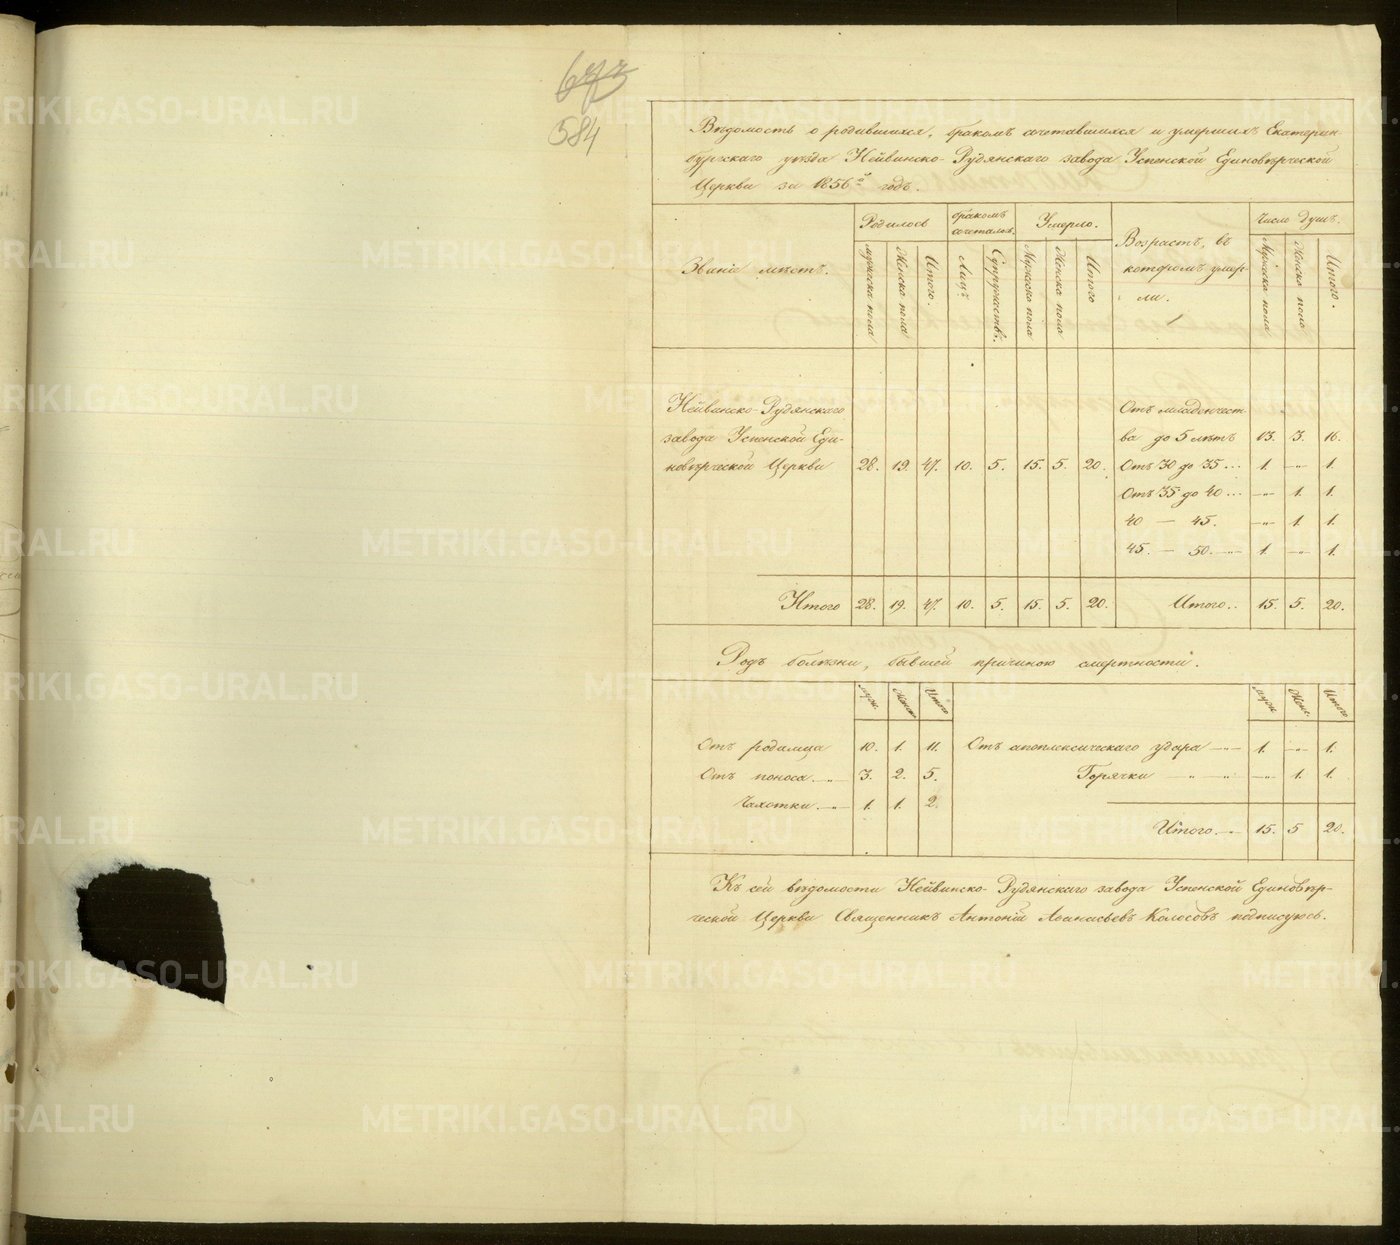 584
Вѣдомость о родившихся, бракомъ сочетавшихся и умершихъ Екатерин
бургскаго уѣзда Нейвинско-Рудянскаго завода Успенской Единовѣрческой
Церкви за 1856й годъ.
Званіе мѣстъ. Родилось бракомъ сочеталось. Умерло. Возрастъ, въ которомъ умерли. Число душъ.
Мужеска пола Женска пола Итого. Лицъ Супружествъ. Мужеска пола Женска пола Итого Мужеска пола Женска пола Итого.
Нейвинско-Рудянскаго Отъ младенчест
завода Успенской Еди- ва до 5 лѣтъ 13. 3. 16.
новѣрческой Церкви 28. 19. 47. 10. 5. 15. 5. 20. Отъ 30 до 35... 1. -„- 1.
Отъ 35 до 40... -„- 1. 1.
40 — 45. -„- 1. 1.
45. — 50. -„- 1. -„- 1.
Итого 28. 19. 47. 10. 5. 15. 5. 20. Итого.. 15. 5. 20.
Родъ болѣзни, бывшей причиною смертности.
муж. Женск. Итого муж. Женс. Итого
Отъ родимца 10. 1. 11. Отъ апоплексическаго удара -„- 1. -„- 1.
Отъ поноса. -„- 3. 2. 5. Горячки -„- -„- -„- 1. 1.
Чахотки. -„- 1. 1. 2.
Итого. -„- 15. 5 20.
Къ сей вѣдомости Нейвинско-Рудянскаго завода Успенской Единовѣр-
ческой Церкви Священникъ Антоній Аѳанасьевъ Колосовъ подписуюсь.
METRIKI.GASO-URAL.RU